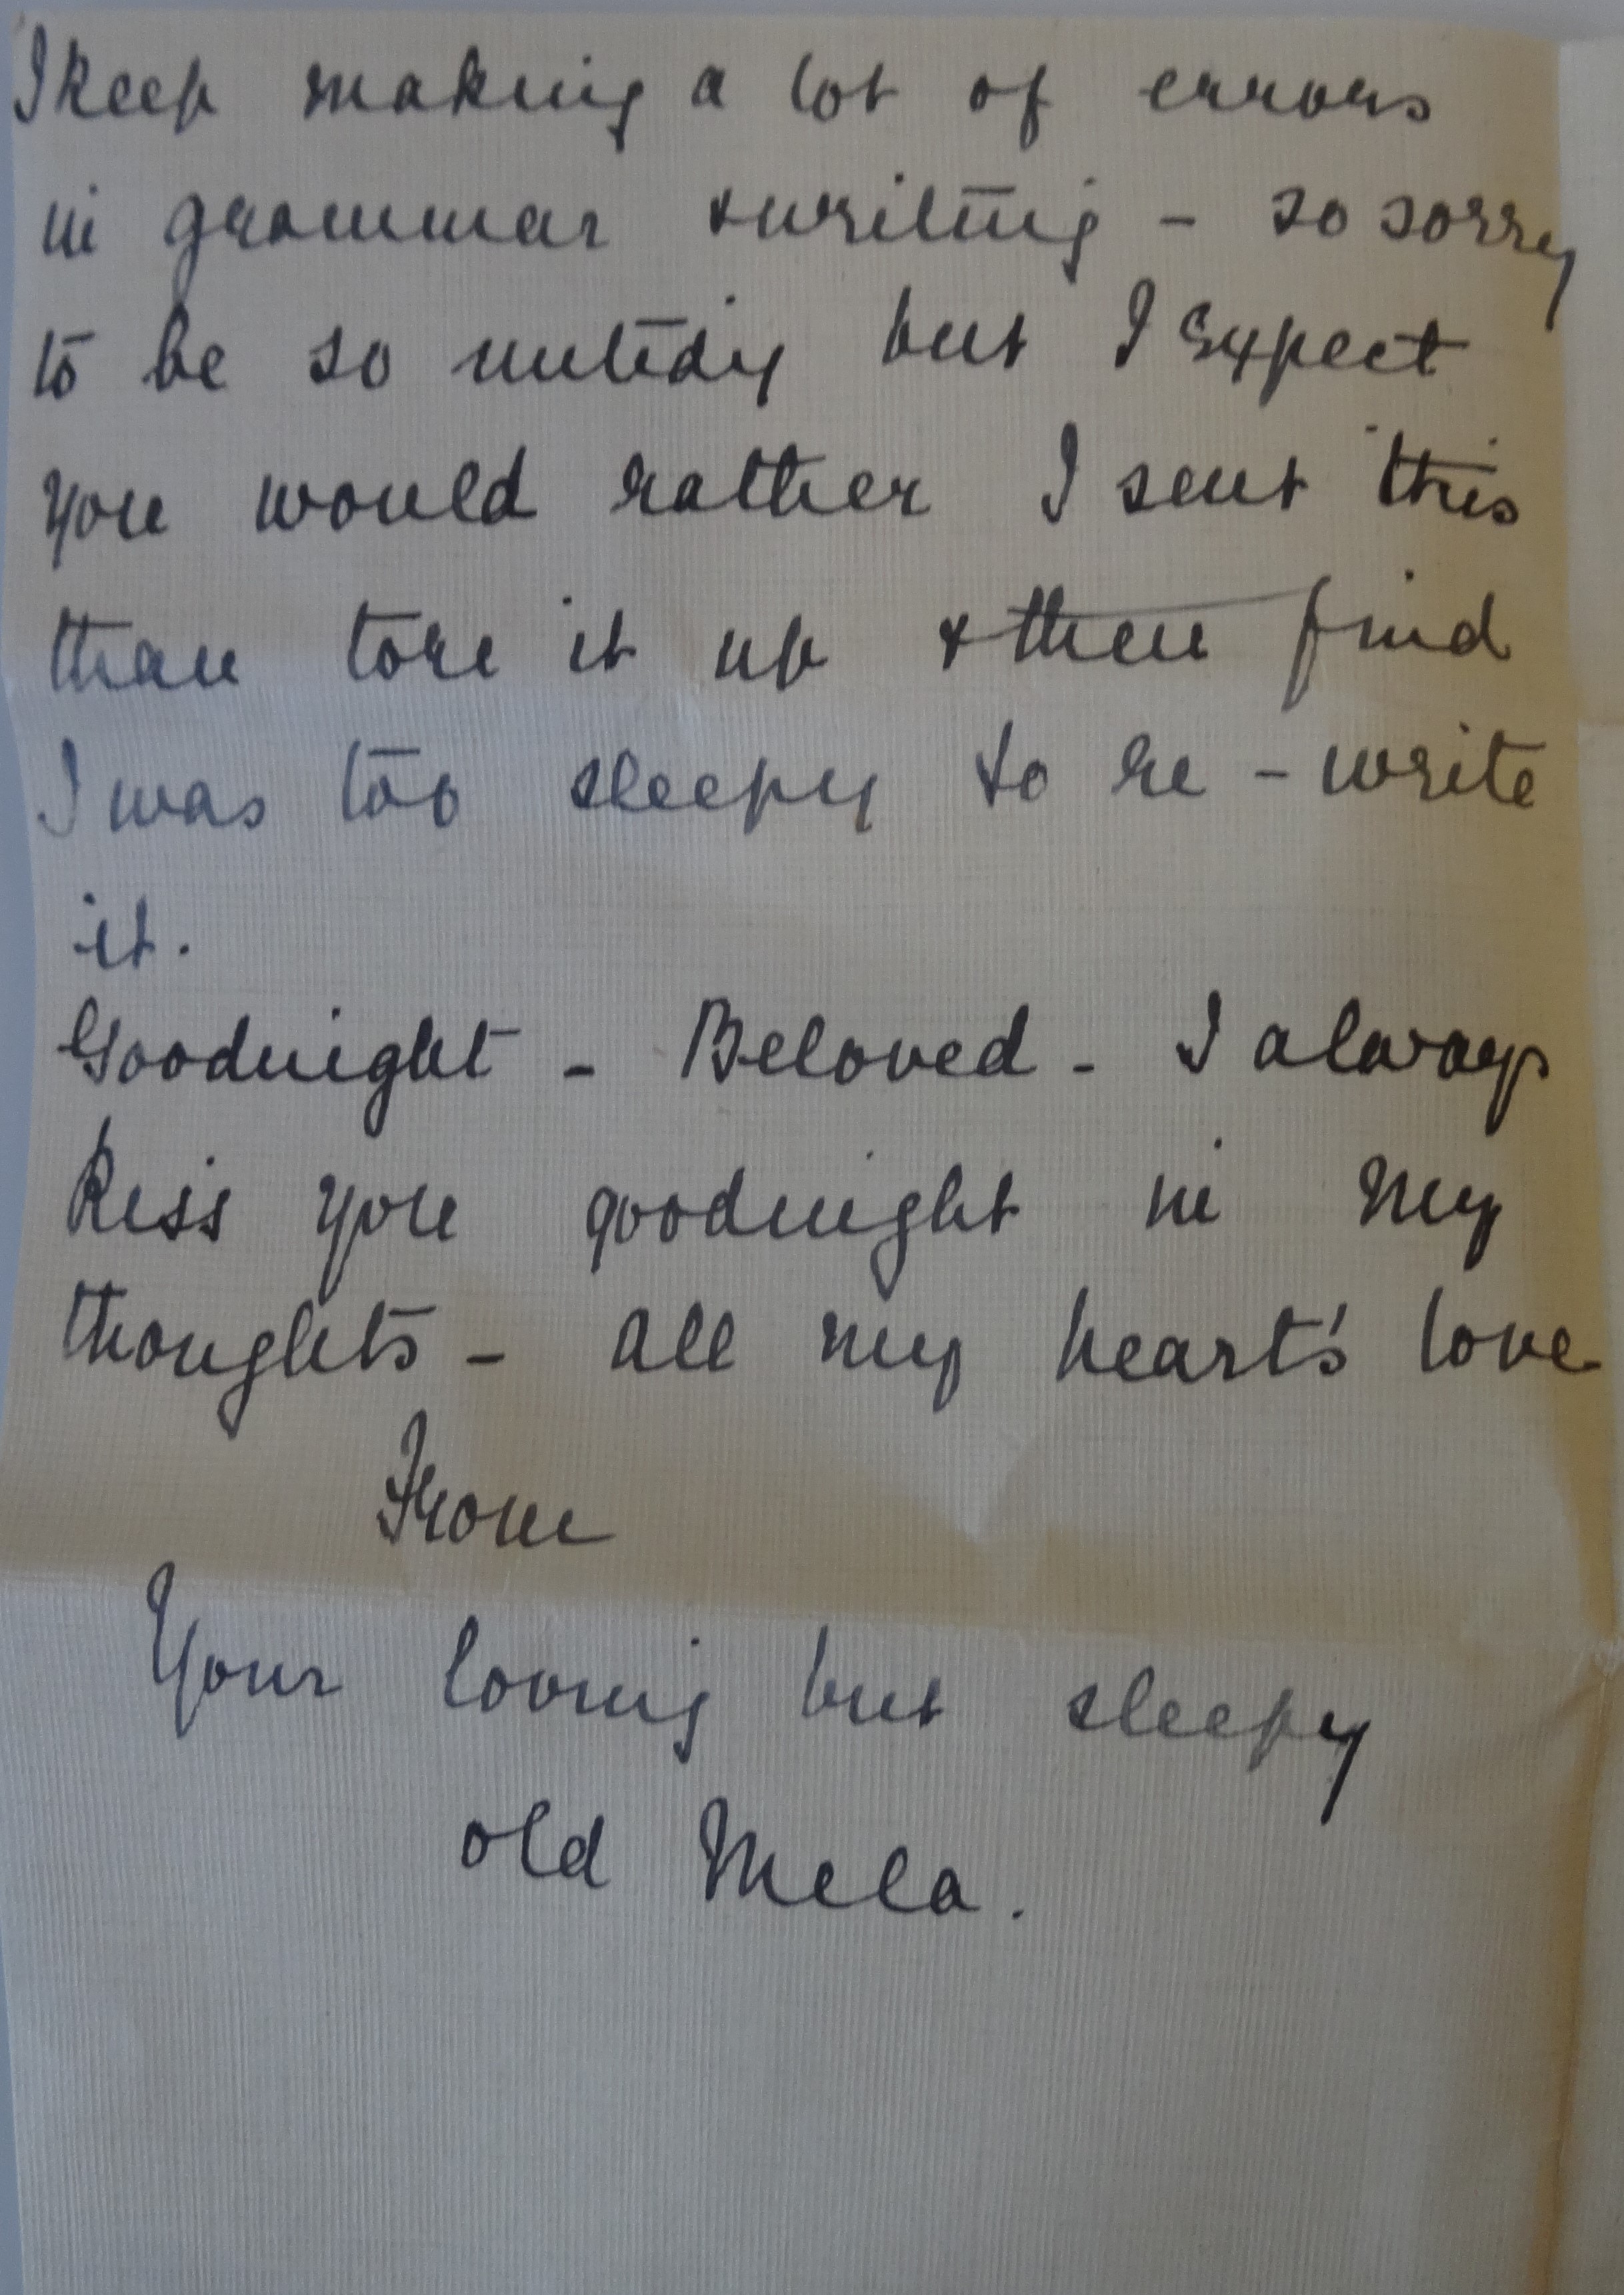 I keep making a lot of errors
in grammar & writing - so sorry
to be so untidy but I expect
you would rather I sent this
than tore it up & then find
I was too sleepy to re-write
it.
Goodnight - Beloved - I always
kiss you goodnight in my
thoughts - all my heart's love
From
Your loving but sleepy
old Mela.